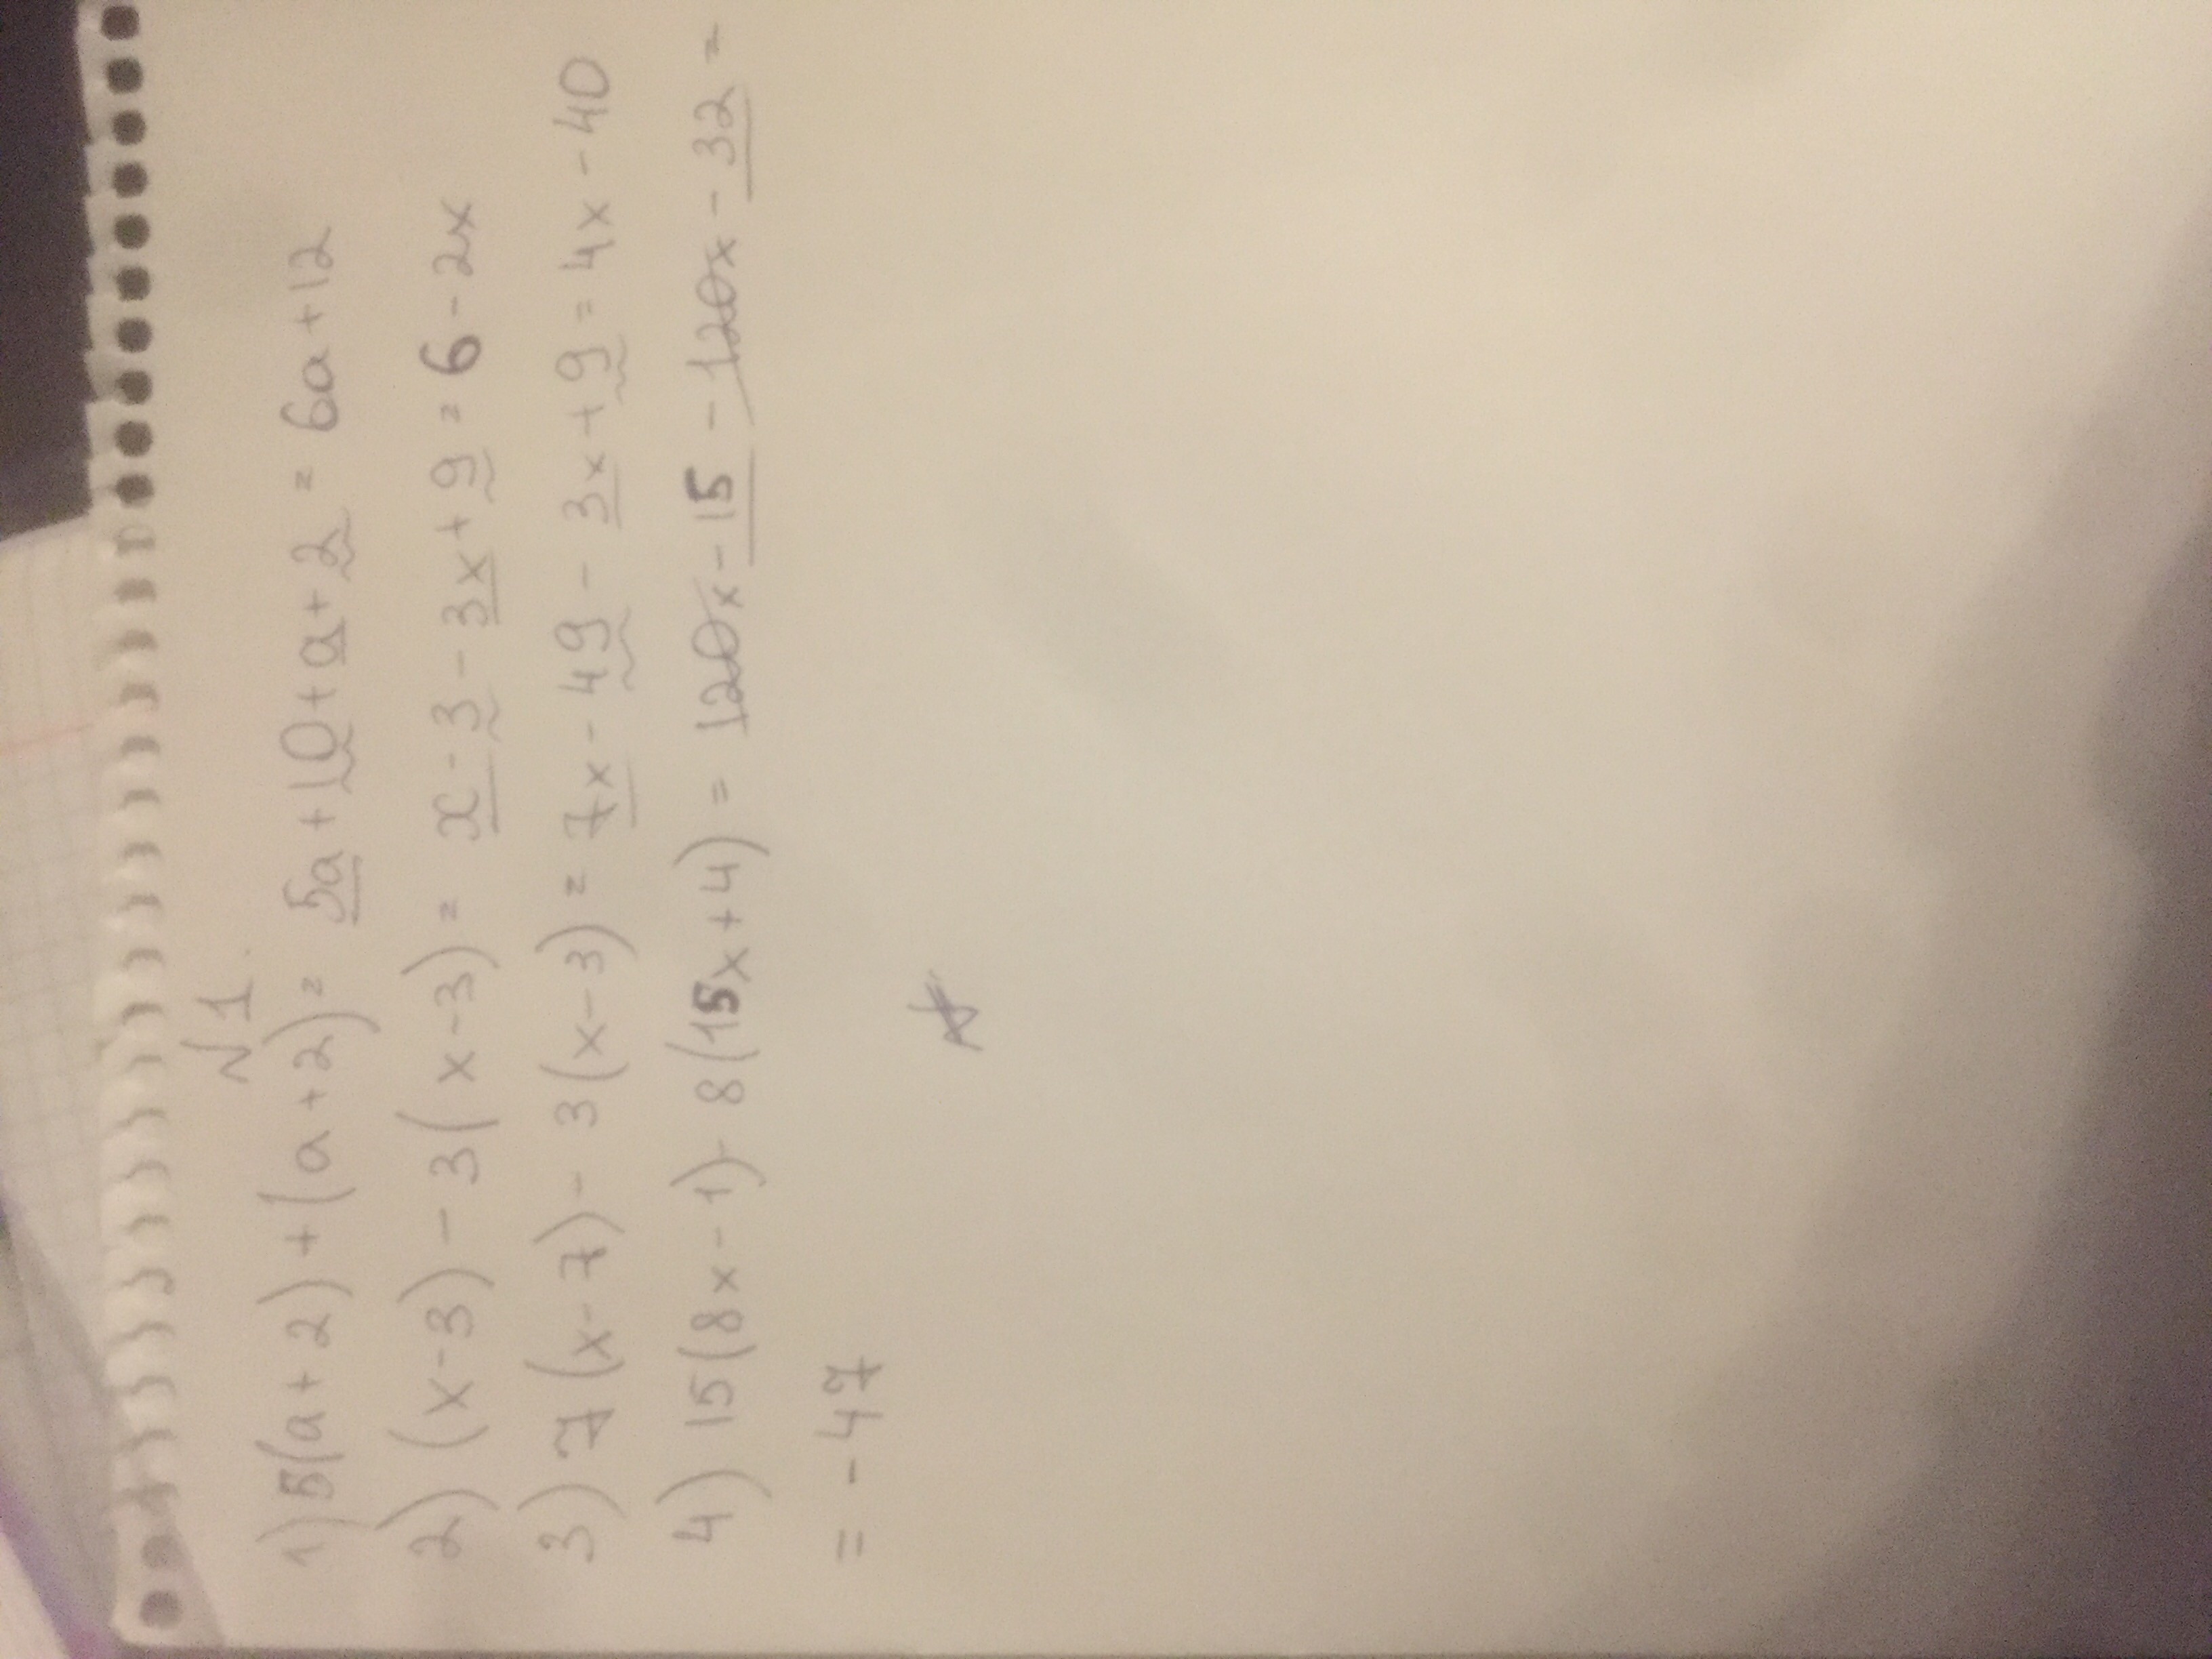 √1.
1) 5(a+2)+(a+2)= 5a+10+a+2 = 6a+12
2) (x-3)-3(x-3)= x-3-3x+9=6-2x
3) 7(x-7)-3(x-3)=7x-49-3x+9=4x-40
4) 15(8x-1)-8(15x+4)= 120x-15-120x-32=
= -47